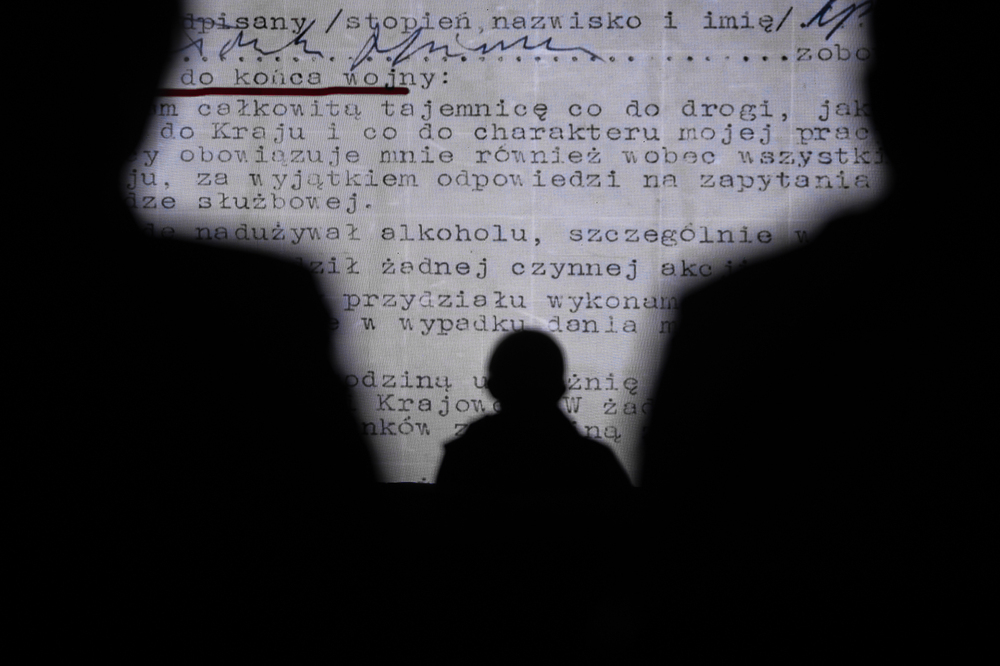 dpisany /stopień, nazwisko i imię/
zobo
do końca wojny:
m całkowitą tajemnicę co do drogi, jak
do Kraju i co do charakteru mojej prac
y obowiązuje mnie również wobec wszystki
ju, za wyjątkiem odpowiedzi na zapytania
dze służbowej.
nadużywał alkoholu, szczególnie w
ził żadnej czynnej akcji
przydziału wykonam
w wypadku dania m
odziną u żnię
Krajowe W żad
nków z iną